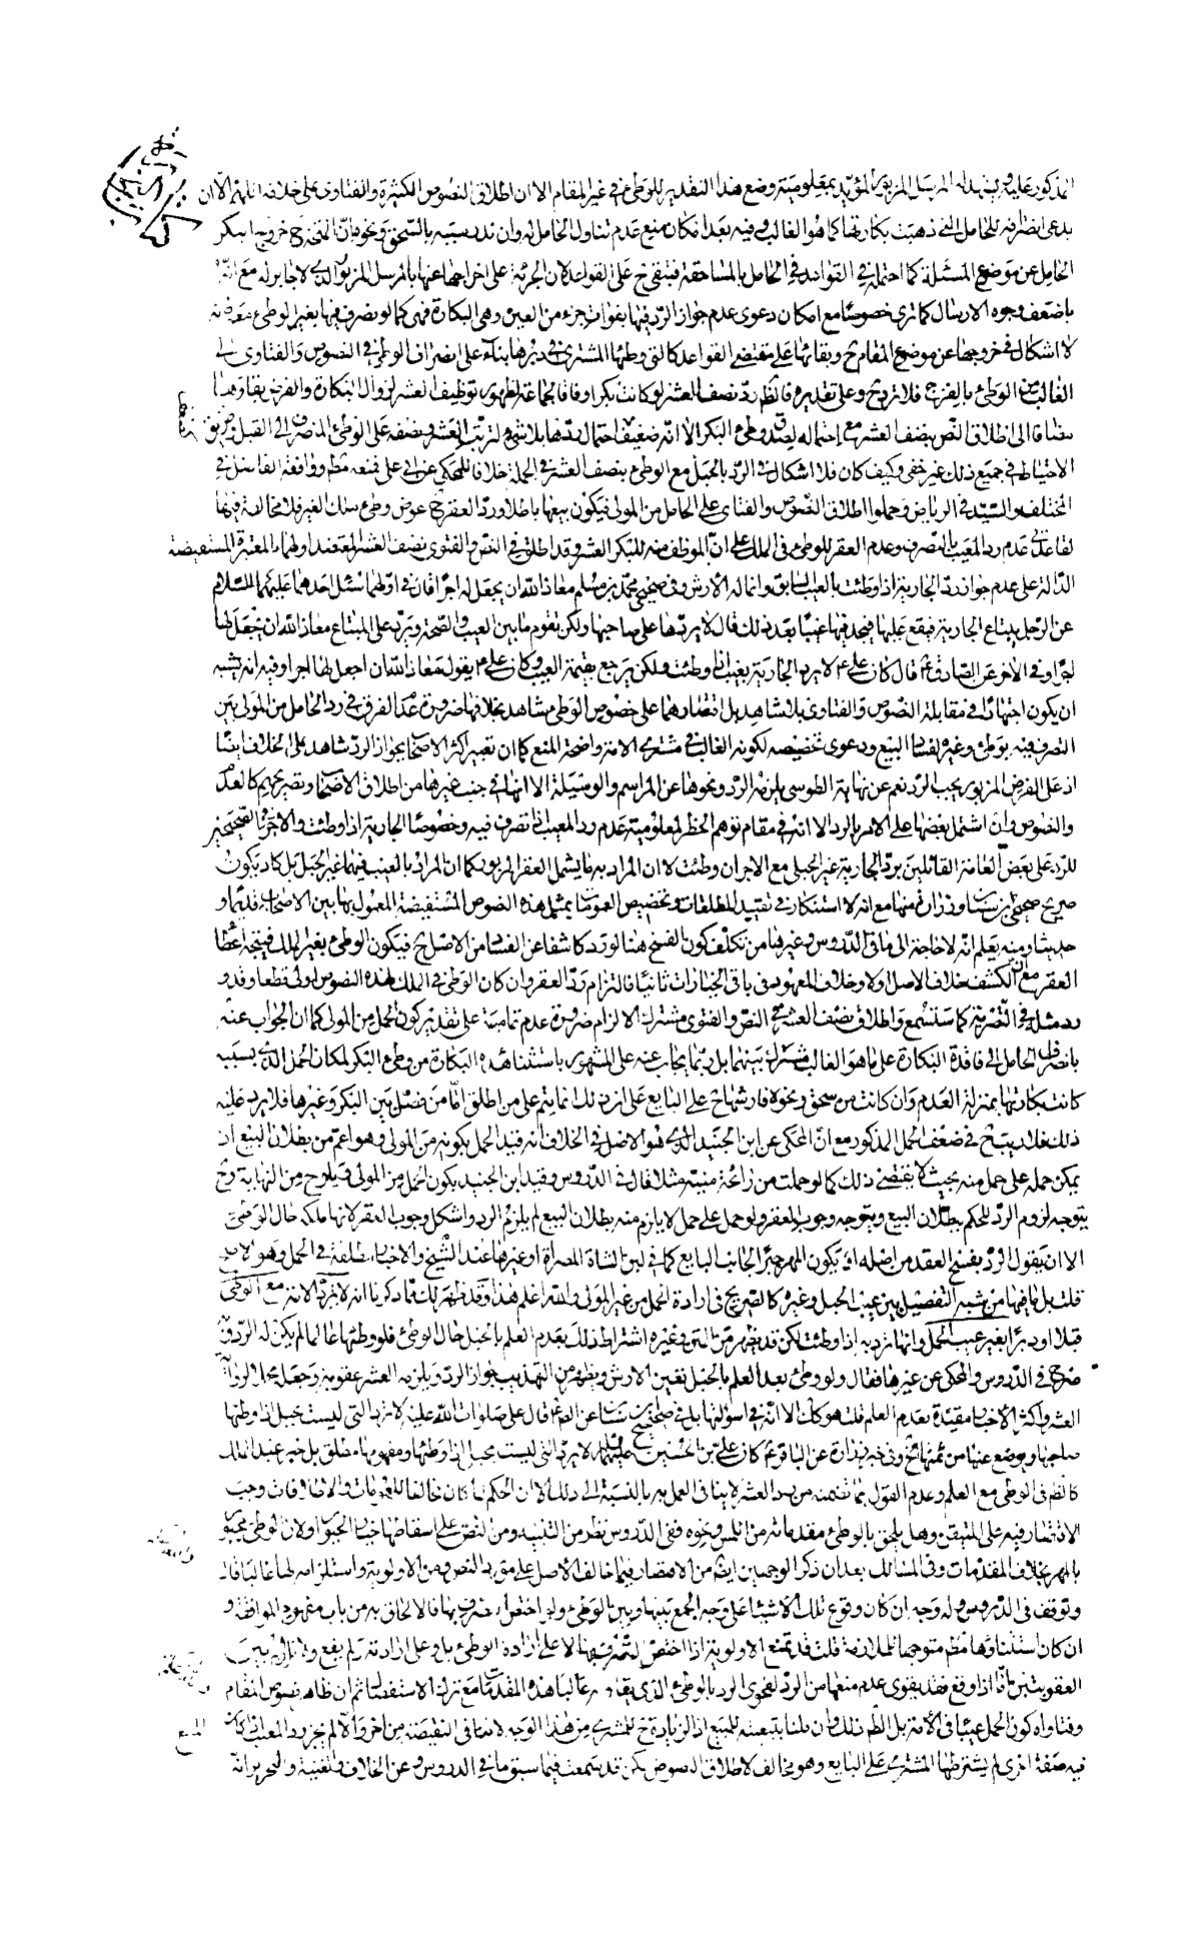 المذكور عليه بشهادة المرسل المزبور المؤيد بمعلومية وضع هذا التقدير للوطئ في غير المقام الا ان اطلاق النصوص الكثيرة والفتاوى على خلافه اللهم الا ان
يدعى انصرافه للحامل التي ذهبت بكارتها كما هو الغالب وفيه بعد امكان منع عدم تناول الحامل له وان ندر سببه بالسحق ونحوه بأن المتجه ح خروج البكر
الحامل عن موضوع المسئلة كما احتمله في القواعد في الحامل بالمساحقة فتبقى ح على القواعد لان الجرئة على اخراجها عنها بالمرسل المزبور الذي لا جابر له مع انه
باضعف وجوه الارسال كما ترى خصوصا مع امكان دعوى عدم جواز الرد فيها بفوات جزء من العين وهي البكارة فهي كما لو تصرف فيها بغير الوطئ مع انه
لا اشكال في خروجها عن موضوع المقام ح وبقائها على مقتضى القواعد كالتي وطئها المشتري في دبرها بناء على انصراف الوطئ في النصوص والفتاوى الى
الغالب من الوطئ بالفرج فلا ترد ح وعلى تقديره فالظ رد نصف العشر لو كانت بكرا وفاقا لجماعة لظهور توظيف العشر لزوال البكارة والفرض بقاؤها
مضافا الى اطلاق النص بنصف العشر مع احتماله لصدق وطئ البكر الا انه ضعيف كاحتمال ردها بلا شئ لترتب العشر ونصفه على الوطئ المنصرف الى القبل وطريق
الاحتياط في جميع ذلك غير خفي وكيف كان فلا اشكال في الرد بالحبل مع الوطئ بنصف العشر في الجملة خلافا للمحكي عن ابي علي فمنعه مط ووافقه الفاضل في
المختلف والسيد في الرياض وحملوا اطلاق النصوص والفتاوى على الحامل من المولى فيكون بيعها باطلا ورد العقر ح عوض وطئ ملك الغير فلا مخالفة فيها
لقاعدتي عدم رد المعيب بالتصرف وعدم العقر للوطئ في الملك على ان الموظف منه للبكر العشر وقد اطلق في النص والفتوى نصف العشر المعتضد اولهما بالمعتبرة المستفيضة
الدالة على عدم جواز رد الجارية اذا وطئت بالعيب السابق وانما له الأرش وفي صحيحي محمد بن مسلم معاذ الله ان يجعل له اجرا فان في اولهما سئل احدهما عليهما السلام
عن الرجل يبتاع الجارية فيقع عليها فيجد فيها عيبا بعد ذلك قال لا يردها على صاحبها ولكن تقوم ما بين العيب والصحة ويرد على المبتاع معاذ الله ان يجعل لها
اجرا وفي الآخر عن الصادق ع قال كان علي ع لا يرد الجارية بعيب اذا وطئت ولكن يرجع بقيمة العيب وكان علي ع يقول معاذ الله ان اجعل لها اجرا وفيه انه يشبه
ان يكون اجتهادا في مقابلة النصوص والفتاوى بلا شاهد بل اقتصارهما على خصوص الوطئ شاهد بخلافها ضرورة عدم الفرق في رد الحامل من المولى بين
التصرف فيه بوطئ وغيره لفساد البيع ودعوى تخصيصه لكونه الغالب في مشتري الامة واضحة المنع كما ان تعبير اكثر الاصحاب بجواز الرد شاهد على الخلاف ايضا
اذ على الفرض المزبور يجب الرد نعم عن نهاية الطوسي يلزمه الرد ونحوها عن المراسم والوسيلة الا انها في جنب غيرها من اطلاق الاصحاب وتصريحهم كالعدم
والنصوص وان اشتمل بعضها على الامر بالرد الا انه في مقام توهم الحظر لمعلومية عدم رد المعيب اذا تصرف فيه وخصوصا الجارية اذا وطئت والاجر في الصحيحين
للرد على بعض العامة القائلين برد الجارية غير الحبلى مع الاجر ان وطئت لا ان المراد به ما يشمل العقر المزبور كما ان المراد بالعيب فيهما غير الحبل بل كاد يكون
صريح صحيح ابن سنان وزرارة منها مع انه لا استنكار في تقييد المطلقات وتخصيص العمومات بمثل هذه النصوص المستفيضة المعمول بها بين الاصحاب قديما و
حديثا ومنه يعلم انه لا حاجة الى ما في الدروس وغيرها من تكلف كون الفسخ هنا لو رد كاشفا عن الفساد من الاصل ح فيكون الوطئ بغير الملك فيتجه اعطاء
العقر مع ان الكشف خلاف الاصل اولا وخلاف المعهود في باقي الخيارات ثانيا فالتزام رد العقر وان كان الوطئ في الملك لهذه النصوص اولى قطعا وقد ورد
رد مثله في التصرية كما ستسمع واطلاق نصف العشر في النص والفتوى مشترك الالزام ضرورة عدم تماميته على تقدير كون الحمل من المولى كما ان الجواب عنه
بانصراف الحامل الى فاقدة البكارة على ما هو الغالب مشترك بينهما بل ربما يجاب عنه على المشهور باستثناء هذه البكارة من وطئ البكر لمكان الحمل الذي بسببه
كانت بكارتها بمنزلة العدم وان كانت من سحق ونحوه فارشها ح على البايع على ان ذلك انما يتم على من اطلق اما من فصل بين البكر وغيرها فلا يرد عليه
ذلك فلا ريب ح في ضعف الحمل المذكور مع ان المحكى عن ابن الجنيد الذي هو الاصل في الخلاف انه قيد الحمل بكونه من المولى وهو اعم من بطلان البيع اذ
يمكن حمله على حمل منه بحيث لا يقتضي ذلك كما لو حملت من زائحة منيه مثلا قال في الدروس وقيد ابن الجنيد بكون الحمل من المولى ويلوح من النهاية وح
يتوجه لزوم الرد للحكم ببطلان البيع ويتوجه وجوب العقر ولو حمل على حمل لا يلزم منه بطلان البيع لم يلزم الرد واشكل وجوب العقر لانها ملكه حال الوطئ
الا ان يقول الرد يفسخ العقد من اصله او يكون المهر جبرا لجانب البايع كما في لبن الشاة المصراة او غيرها عند الشيخ والاخبار مطلقة في الحمل وهو الاصح
قلت بل ما فيها من شبه التفصيل بين عيب الحبل وغيره كالصريح في ارادة الحمل من غير المولى والله اعلم هذا وقد ظهر لك مما ذكرنا انه لا ترد الامة مع الوطئ
قبلا او دبرا بغير عيب الحمل وانها ترد به اذا وطئت لكن قد يظهر من المتن وغيره اشتراط ذلك بعدم العلم بالحبل حال الوطئ فلو وطئها عالما لم يكن له الرد وبه
صرح في الدروس والمحكى عن غيرها فقال ولو وطئ بعد العلم بالحبل تعين الارش ويظهر من التهذيب جواز الرد ويلزمه العشر عقوبة وجعله محمل الرواية
العشر واكثر الاخبار مقيدة بعدم العلم قلت هو كك الا انه في اسؤلتها بل في صحيح ابن سنان عن الص ع قال علي صلوات الله عليه لا ترد التي ليست بحبلى اذا وطئها
صاحبها ويوضع عنها من ثمنها الخ وفي خبر زرارة عن الباقر ع كان علي بن الحسين عليهما السلام لا يرد التي ليست بحبلى اذا وطئها ومفهومهما مطلق بل خبر عبد الملك
كالظ في الوطئ مع العلم وعدم القول بما تضمنه من رد العشر لا ينافي العمل به بالنسبة الى ذلك الا ان الحكم لما كان مخالفا للعمومات والاطلاقات وجب
الاقتصار فيه على المتيقن وهل يلحق بالوطئ مقدماته من اللمس ونحوه ففي الدروس نظر من التنبيه ومن النص على اسقاطها خيار الحيوان ولان الوطئ مجبور
بالمهر بخلاف المقدمات وفي المسالك بعد ان ذكر الوجهين ايضا من الاقتصار فيما خالف الاصل على مورد النص ومن الاولوية واستلزامه لها غالبا قال
وتوقف في الدروس وله وجه ان كان وقوع تلك الاشياء على وجه الجمع بينها وبين الوطئ ولو اختص التصرف بها فالالحاق به من باب مفهوم الموافقة و
ان كان استثناؤها مط متوجها للملازمة قلت قد تمنع الاولوية اذا اختص التصرف بها لا على ارادة الوطئ بل وعلى ارادته ولم يقع
العقوبتين اما اذا وقع فقد يقوى عدم منعها من الرد لفحوى الرد بالوطئ الذي يقارنه غالبا هذه المقدمات مع ترك الاستفصال ثم ان ظاهر نصوص المقام
وفتاواه كون الحمل عيبا في الأمة بل الظ ذلك وان قلنا بتبعيته للمبيع اذ الزيادة ح للمشتري من هذا الوجه لا تنافي النقيصة من اخر والا لم يجز رد المعيب اذا كان
فيه صفة اخرى لم يشترطها المشتري على البايع وهو مخالف لاطلاق النصوص لكن قد يسمعت فيما سبق ما في الدروس وعن الخلاف والغنية والتحرير انه